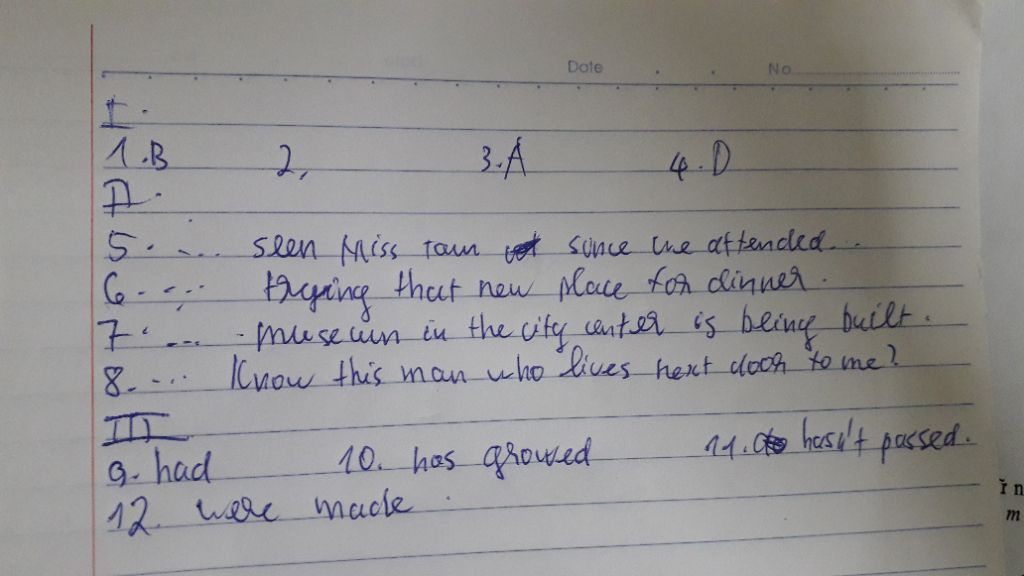 Date No
I.
1.B 2, 3.A 4.D
II.
5. .... seen Miss since we attended...
6. .... trying that new place for dinner.
7. .... museum in the city center is being built.
8. .... Know this man who lives next door to me?
III
9. had 10. has growed 11. hasn't passed.
12. were made.
n
m